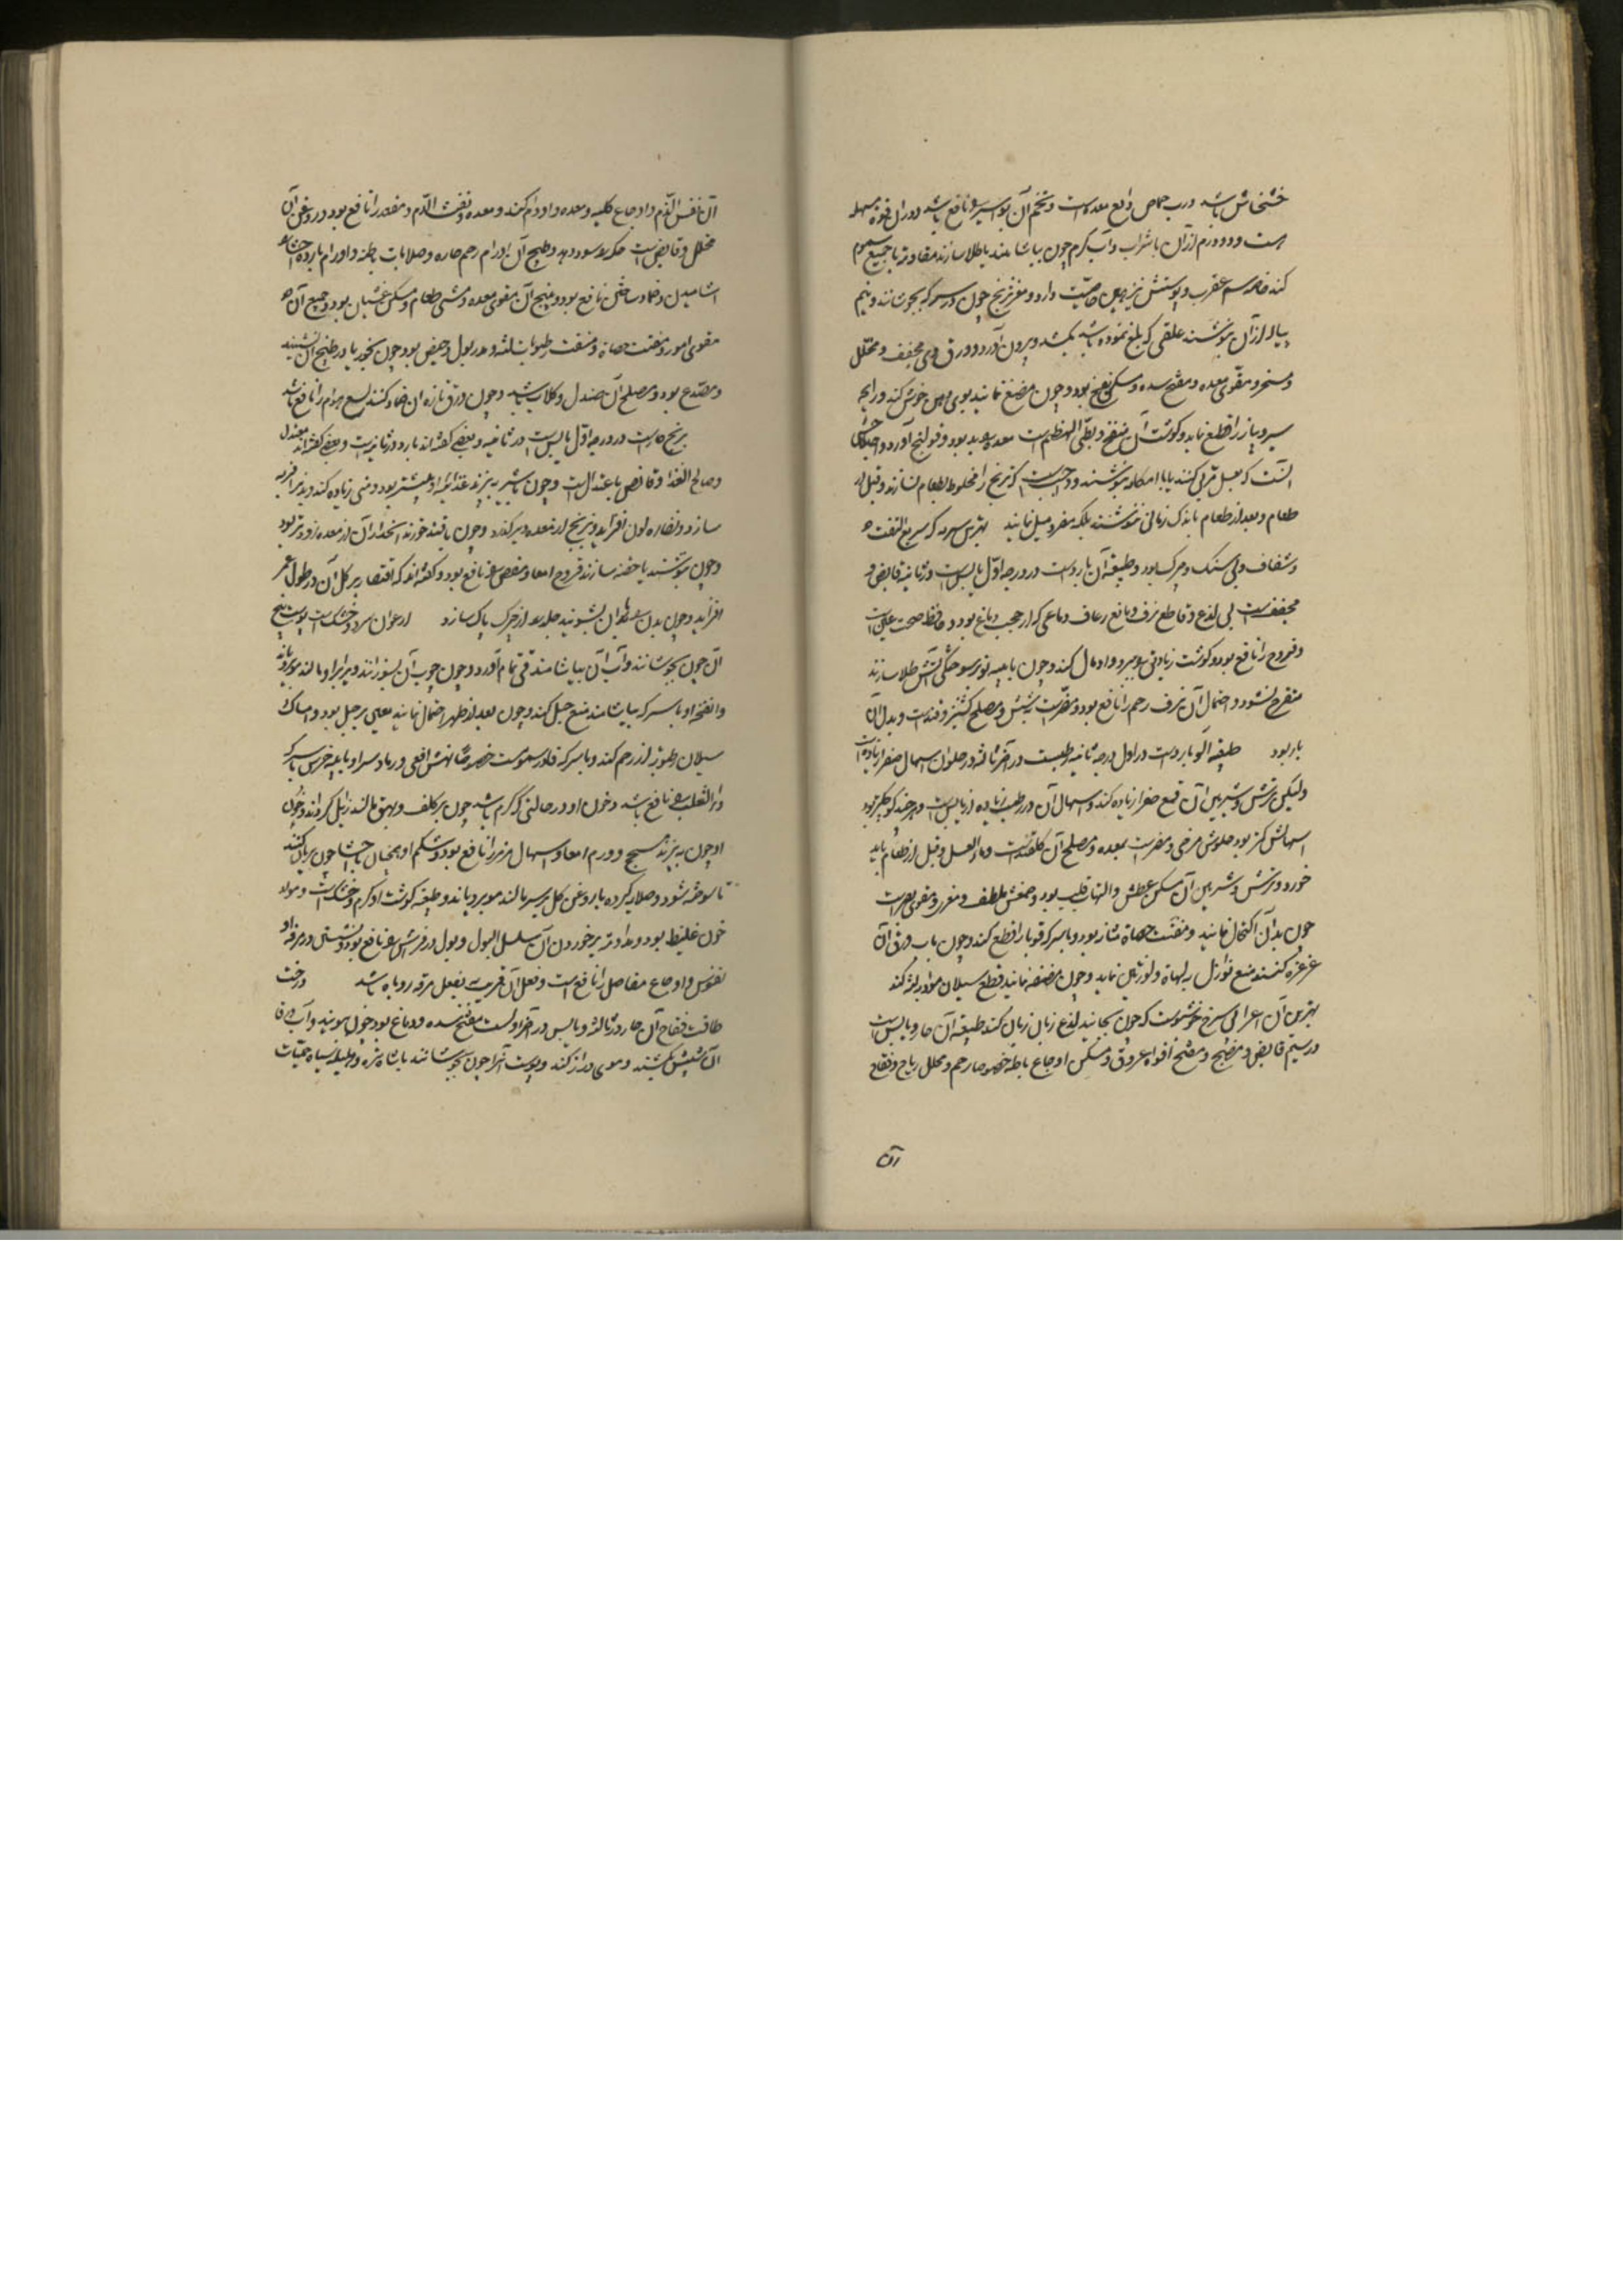 خشخاش باشد و رب حماض دابغ معده است و تخم آن بواسیر را نافع باشد و در آن قوة مسهله
است و دو درم از آن با شراب و آب گرم چون بیاشامند یا طلا سازند مقاومة با جمیع سموم
کند خاصه سم عقرب و پوستش نیز همین خاصیت دارد و مغز ترنج چون در سرکه بجوشانند و نیم
پیاله از آن بنوشند علقی که بلع نموده باشد بکشد و بیرون آورد و ورق وی مجفف و محلل
و مسخن و مقوی معده و مفتح سده و مسکن نفخ بود و چون مضغ نمایند بوی دهن خوش کند و رایحه
سیر و پیاز را قطع نماید و گوشت آن منفخ و بطی الهضم است معده را بد بود و قولنج آورد
آنست که بعسل مربی کنند یا با امکامه بنوشند و واجبست که ترنج را مخلوط بطعام نسازند و قبل از
طعام و بعد از طعام باندک زمانی ننوشند بلکه مفرد میل نمایند بهترین سرمه که سریع التفتت
و شفاف و بی سنگ و چرک بود و طبیعة آن باردست در درجه اول یابس است در ثانیه قابض و
مجففست بی لذع و قاطع نزف و مانع رعاف دماغی که از حجب دماغ بود و حافظ صحت عین است
و قروح را نافع بود و گوشت زیادتی را ببرد و اندمال کند و چون با پیه تو بر سوختگی آتش طلا سازند
متقرح نشود و احتمال آن نزف رحم را نافع بود و مضرست بشش و مصلح کتیرا و قندست و بدل آن
بار بود طبیعة آلو باردست در اول درجه ثانیه رطبست در آخر ثالثه در حلو آن اسهال صفرا زیادتست
ولیکن ترش و شیرین آن قمع صفرا زیاده کند و اسهال آن در رطب زیاده از یابس است و هرچند کوچکتر بود
اسهالش کمتر بود حلوش مرخی و مضرست بمعده و مصلح آن گلقندست و ماء العسل و قبل از طعام باید
خورد و ترش و شیرین آن مسکن عطش و التهاب قلب بود و صمغش ملطف و مغری و مقوی بصرست
چون بدان اکتحال نمایند و مفتت حصاة مثانه بود و با سرکه قوبا را قطع کند و چون بآب ورق آن
غرغره کنند منع نوازل بلهاة و لوزتین نماید و چون مضمضه نمایند قطع سیلان مواد بلثه کند
بهترین آن اعرابی سرخ خوشبوست که چون بخایند لذع زبان زبان کند طبیعة آن حار و یابس است
در سیم قابض و منضج و مفتح افواه عروق و مسکن اوجاع باطنه خصوصا رحم و محلل ریاح و فقاح
آن
آن نفس الدم و اوجاع کلیه و معده و اورام کبد و معده و نفث الدم و مقعد را نافع بود و روغن آن
محلل و قابض است حکه را سود دهد و طبیخ آن اورام رحم حاره و صلابات باطنه و اورام بارده احشا
آشامیدن و ضماد ساختن نافع بود و بیخ آن مقوی معده و مشهی طعام و مسکن غثیان بود و جمیع آن
مقوی امور و مفتت حصاة و منشف رطوبات لثه و مدر بول و حیض بود چون بخورند یا در طبیخ آن نشینند
و مصدع بود و مصلح آن صندل و گلاب باشد و چون ورق تازه آن ضماد کنند لسع هوام را نافع باشد
برنج حارست در درجه اول یابس است در ثانیه و بعضی گفته‌اند بارد در ثانیه است و بعضی گفته‌اند معتدل
و صالح الغذا و قابض باعتدال است و چون با شیر بپزند غذائیت او بیشتر بود و منی زیاده کند و بدن را فربه
سازد و نضارة لون افزاید و برنج از معده دیر گذرد و چون با قند خورند انحدار آن از معده زودتر بود
و چون بنوشند یا حقنه سازند قروح امعا و مغص را نافع بود و گفته‌اند که اقتصار بر اکل آن در طول عمر
افزاید و چون بدن را بآب آن بشویند جلد را از چرک پاک سازد ارغوان سرد و خشک است پوست بیخ
آن چون بجوشانند و آب آن بیاشامند قی تمام آورد و چون چوب آن بسوزانند و بر ابرو مالند موی رویاند
و انفحه او با سرکه بیاشامند منع حبل کند و چون بعد از طهر احتمال نمایند معین بر حبل بود و امساک
سیلان رطوبة از رحم کند و با سرکه فادزهر سموم است خصوصا نهش افعی و رماد سر او با پیه خرس یا سرکه
داء الثعلب را نافع باشد و خون او در حالتی که گرم باشد چون بر کلف و بهق مالند زایل گرداند و خون
او چون بپزند سحج و ورم امعا و اسهال مزمن را نافع بود و شکم او همچنان با احشا چون بریان کنند
تا سوخته شود و صلایه کرده با روغن گل بر سر مالند موی برویاند و طبیعة گوشت او گرم و خشک است و مولد
خون غلیظ بود و مداومة بر خوردن آن سلس البول و بول در فراش را نافع بود و نشستن در مرقه او
نقرس و اوجاع مفاصل را نافع است و فعل آن قریب بفعل مرقه روباه باشد درخت
طاقت فقاح آن حار در ثالثه و یابس در آخر اولست مفتح سده دماغ بود چون ببویند و آب ورق
آن شپش بکشد و موی دراز کند و پوست آنرا چون بجوشانند با شاهتره و هلیله سیاه حمیات